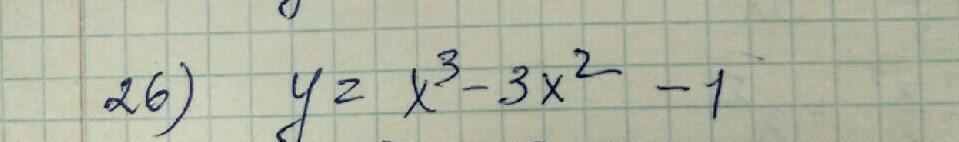 26) y = x³ - 3x² - 1